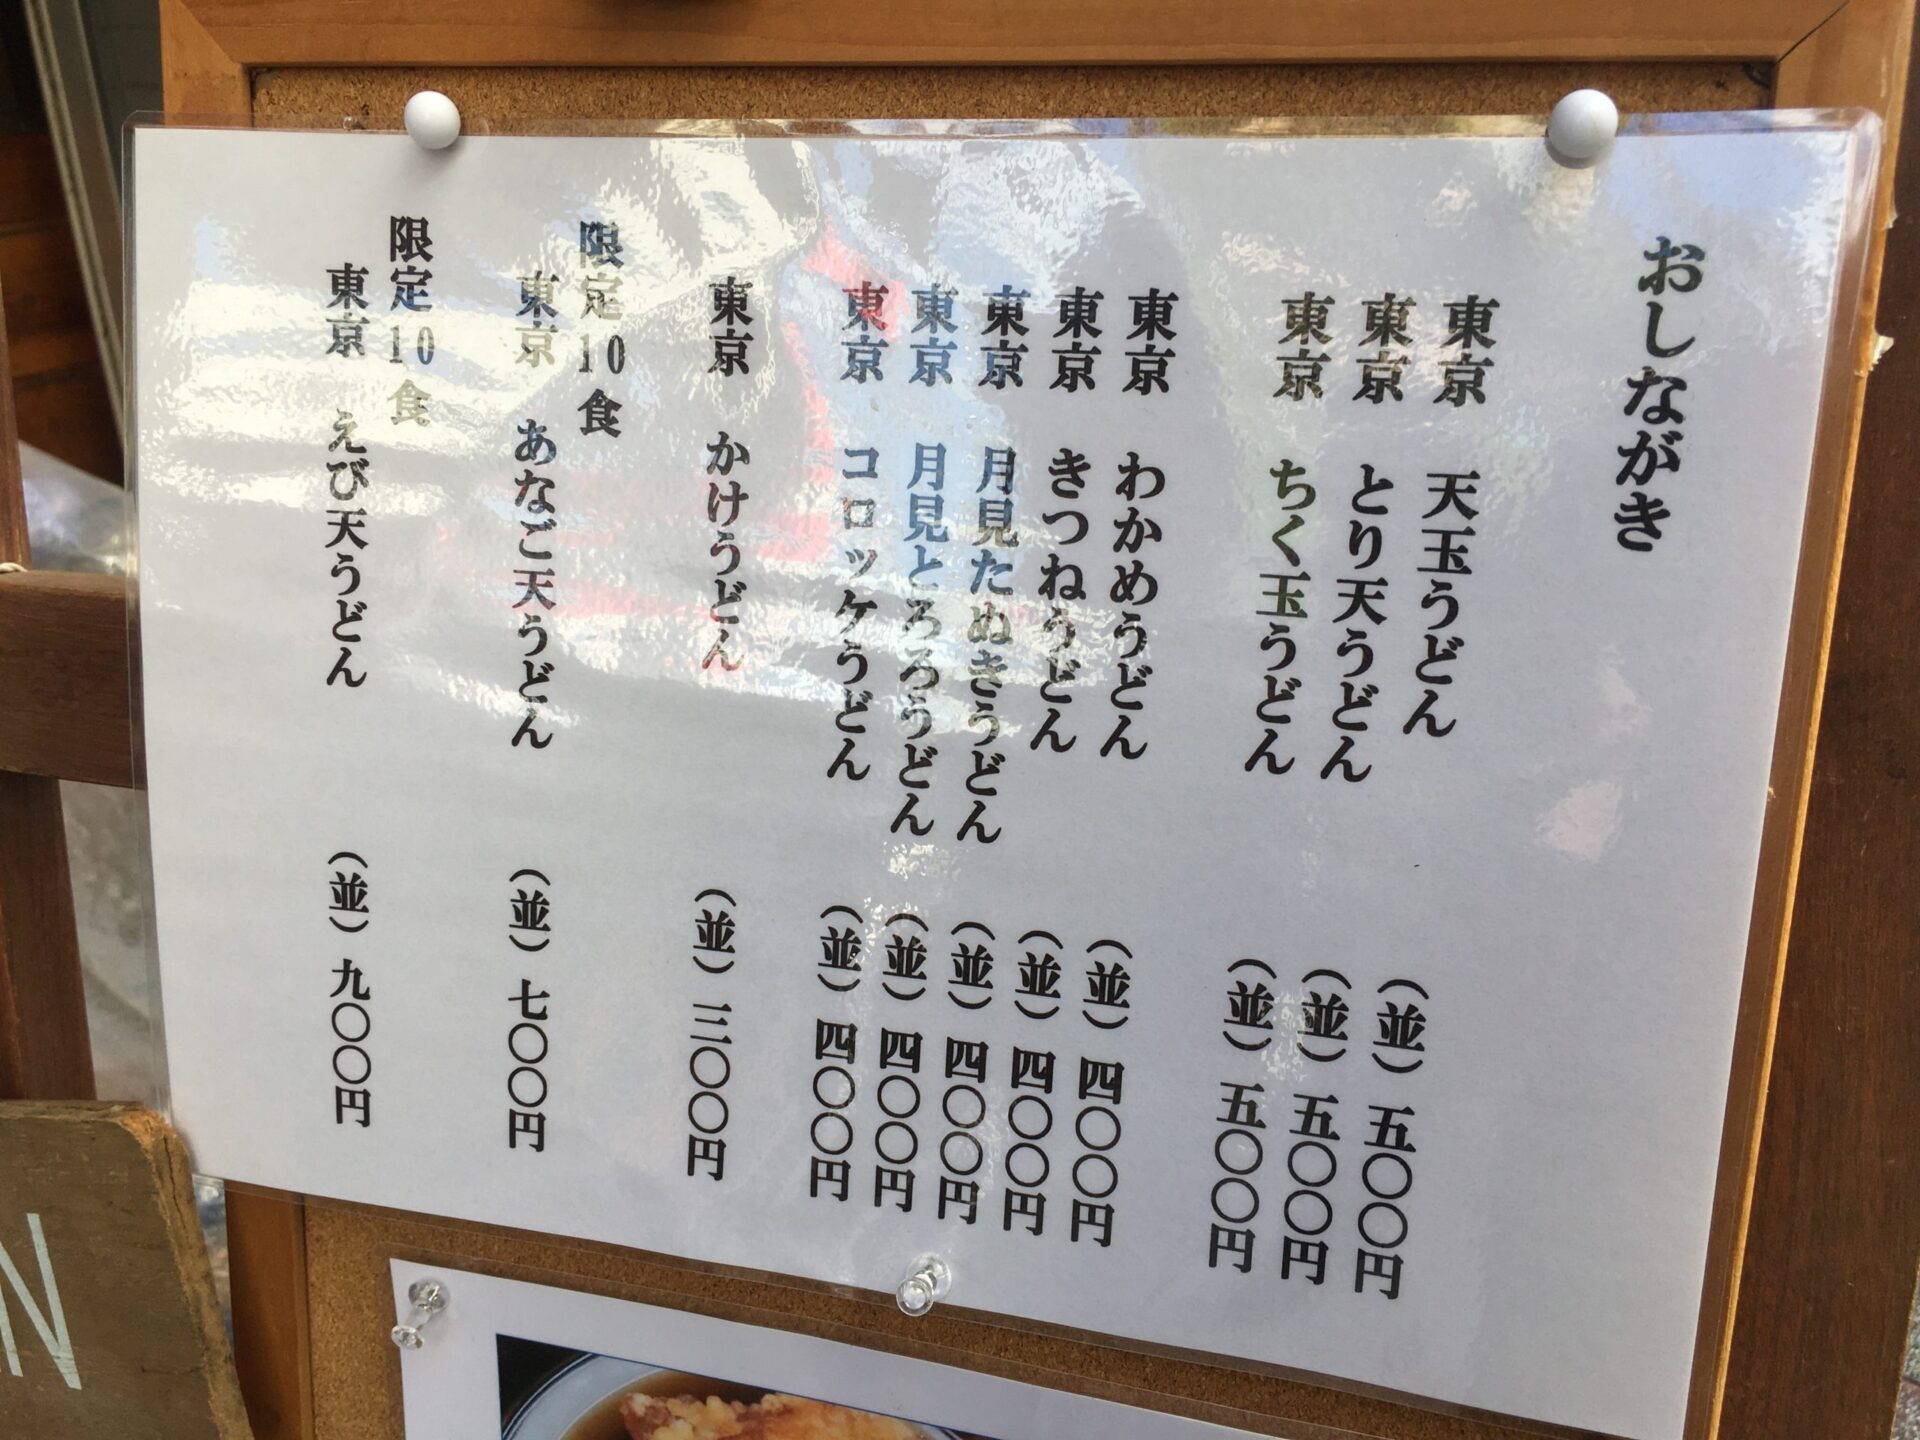 おしながき
東京 天玉うどん (並) 五〇〇円
東京 とり天うどん (並) 五〇〇円
東京 ちく玉うどん (並) 五〇〇円
東京 わかめうどん (並) 四〇〇円
東京 きつねうどん (並) 四〇〇円
東京 月見たぬきうどん (並) 四〇〇円
東京 月見とろろうどん (並) 四〇〇円
東京 コロッケうどん (並) 四〇〇円
東京 かけうどん (並) 三〇〇円
限定10食
東京 あなご天うどん (並) 七〇〇円
限定10食
東京 えび天うどん (並) 九〇〇円